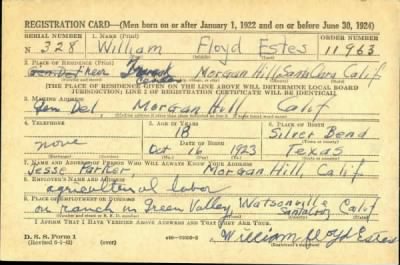 REGISTRATION CARD—(Men born on or after January 1, 1922 and on or before June 30, 1924)
SERIAL NUMBER 1. NAME (Print) ORDER NUMBER
N 328 William Floyd Estes 11963
2. PLACE OF RESIDENCE (Print)
Morgan Hill, Santa Clara Calif
[THE PLACE OF RESIDENCE GIVEN ON THE LINE ABOVE WILL DETERMINE LOCAL BOARD
JURISDICTION; LINE 2 OF REGISTRATION CERTIFICATE WILL BE IDENTICAL]
3. MAILING ADDRESS
Gen Del Morgan Hill, Calif
4. TELEPHONE 5. AGE IN YEARS 6. PLACE OF BIRTH
18 Silver Bend
none DATE OF BIRTH
Oct 16 1923 Texas
7. NAME AND ADDRESS OF PERSON WHO WILL ALWAYS KNOW YOUR ADDRESS
Jesse Parker, Morgan Hill, Calif
8. EMPLOYER'S NAME AND ADDRESS
agricultural labor
9. PLACE OF EMPLOYMENT OR BUSINESS
on ranch in Green Valley, Watsonville Calif
I AFFIRM THAT I HAVE VERIFIED ABOVE ANSWERS AND THAT THEY ARE TRUE.
D. S. S. Form 1
(Revised 6-9-42) (over) William Floyd Estes